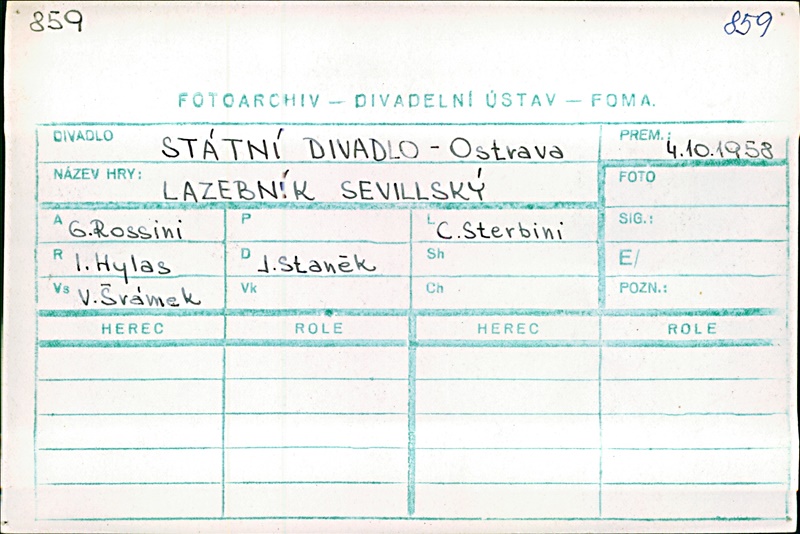 859 859
FOTOARCHIV — DIVADELNÍ ÚSTAV — FOMA.
DIVADLO STÁTNÍ DIVADLO - Ostrava PREM.: 4.10.1958
NÁZEV HRY: LAZEBNÍK SEVILLSKÝ FOTO
A G.Rossini P L C.Sterbini SIG.:
R I.Hylas D J.Staněk Sh E/
Vs V.Šrámek Vk Ch POZN.:
HEREC ROLE HEREC ROLE